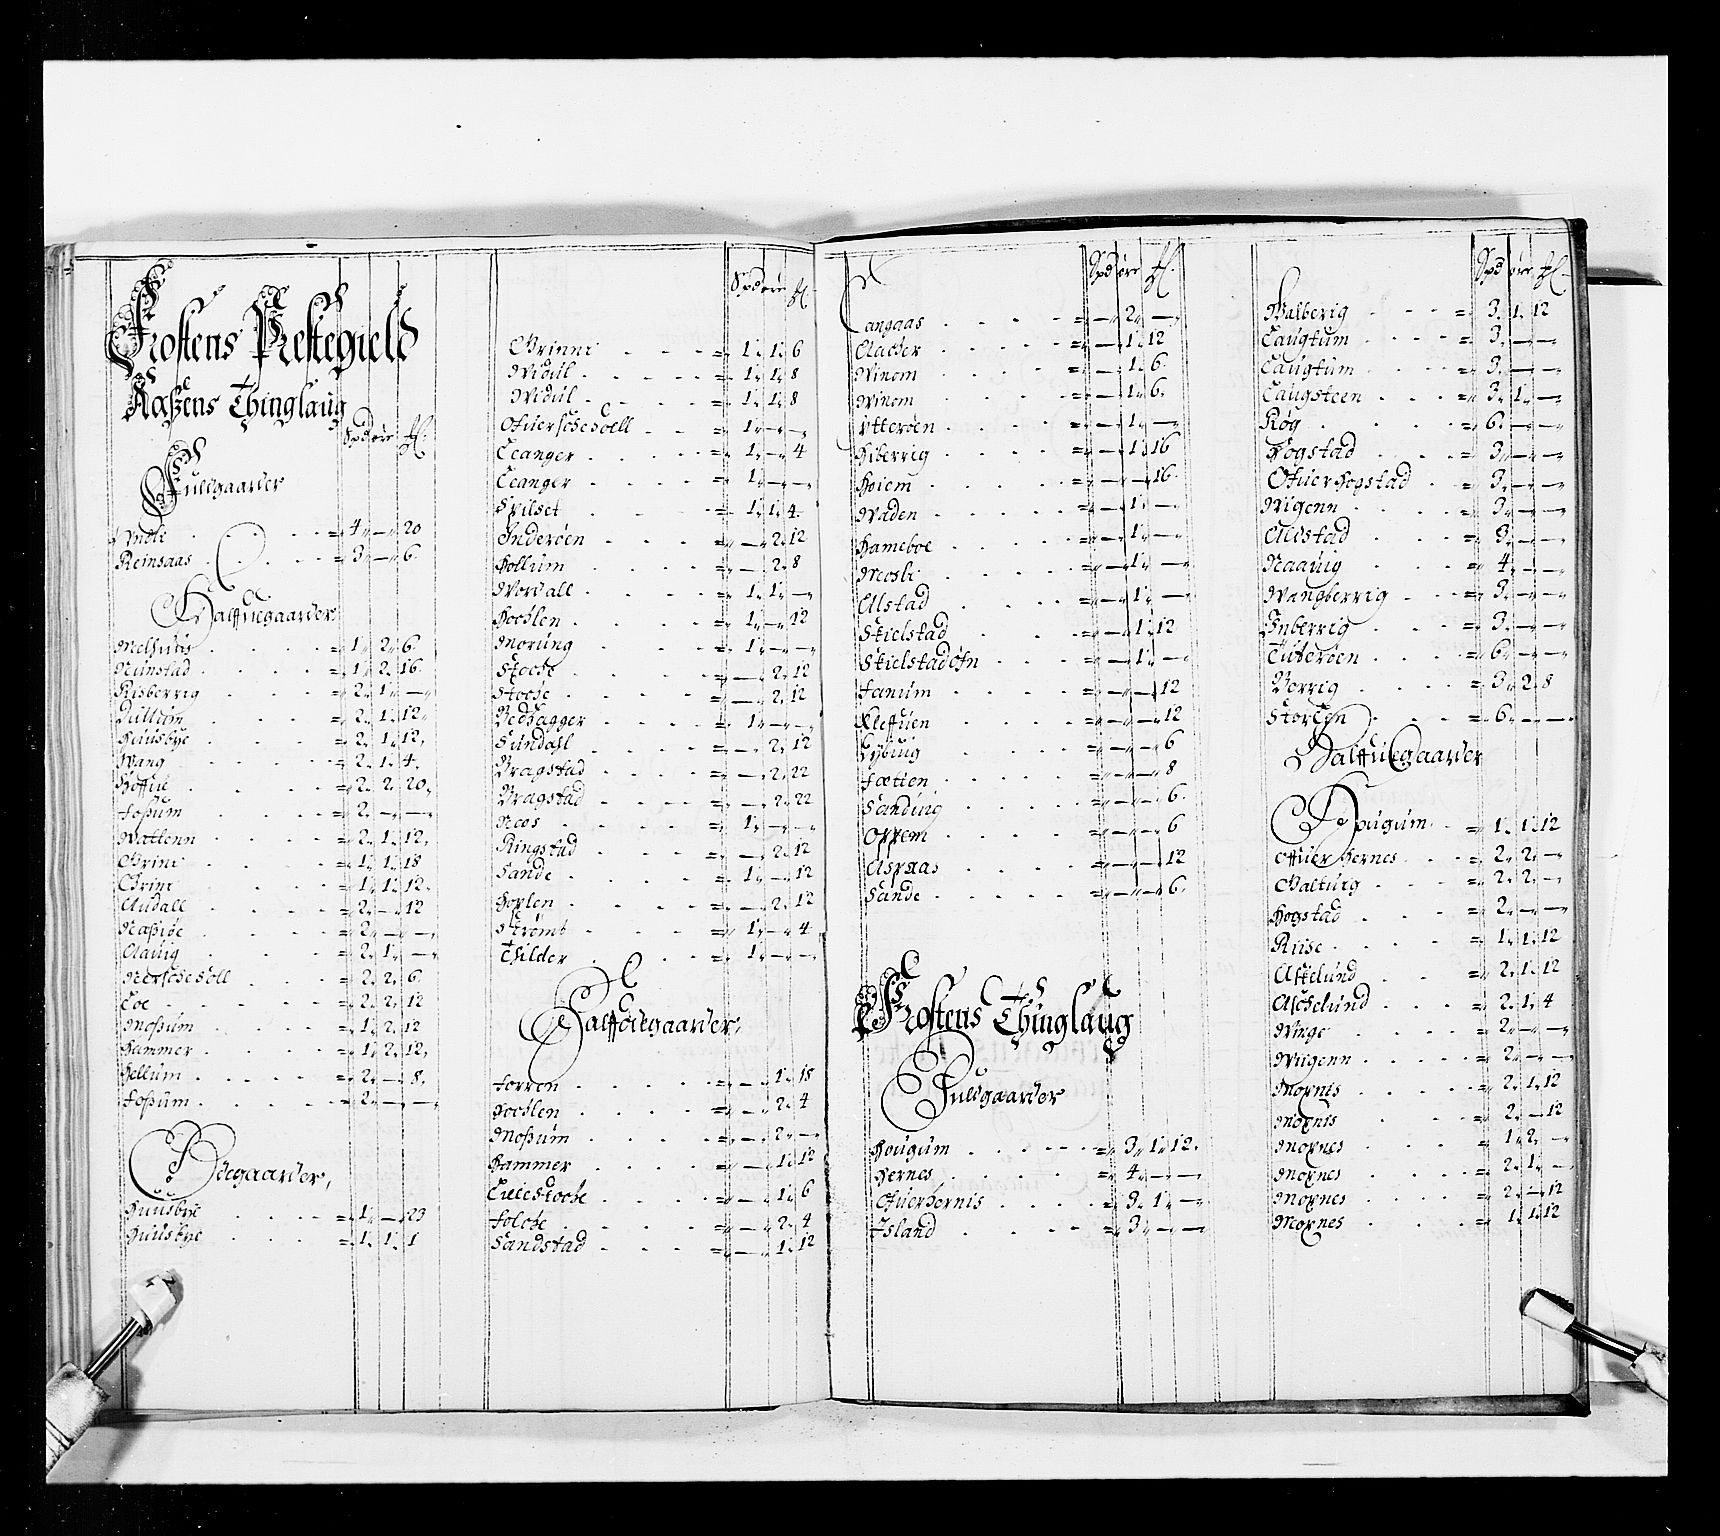 Frostens Prestegield
Aaszens Thinglaug
Spd øre
Fuldgaarder
= 4 — 20
Reinsaas = 3 — 6
Halffuegaarder
Melhuus = 1 2 6
Nunstad = 1 2 16
Risberrig = 2 1 —
= 2 1 12
Huusbye = 2 1 12
Wang = 2 1 4
Hoffue = 2 2 20
Fossum = 2 — —
Wattenn = 2 1 12
Grint = 1 1 18
Grint = 1 1 12
Audall = 2 — 12
= 2 — —
Aauig = 2 1 —
= 2 2 6
Loe = 2 2 12
Mossum = 1 2 12
Hammer = 1 2 12
Hellum = 2 — 8
Fossum = 2 — —
Ødegaarder
Huusbye = 1 — 23
Huusbye = 1 1 1
Spd øre
Grinni = 1 1 6
Widul = 1 1 8
Widul = 1 1 8
= 1 — —
Leanger = 1 — 4
Leanger = 1 — —
Spilset = 1 1 4
Inderøen = — 2 12
Hollum = — 2 8
Wordall = 1 1 —
Hocslen = 1 — 12
Morung = 1 — —
Stocke = — 2 12
Stocke = — 2 12
Vedsagger = 1 — —
Sundahl = — 2 12
Bragstad = — 2 22
Bragstad = — 2 22
Noes = 1 — —
Ringstad = — 2 12
Sande = 1 — 12
Hoplen = — 2 12
Strømb = 1 — 4
Thilder = 1 — —
Halffdegaarder
Forren = — 1 18
Hocslen = — 2 4
Mossum = — 2 —
Hammer = — 1 12
= — 1 6
Folcke = — 2 4
Sandstad = — 1 12
Spd øre
Langaas = — 2 —
Aacker = — 1 12
Winom = — 1 6
Winom = — 1 6
Ytterøen = — 1 —
Hiberrig = — 1 16
Hoiem = — — 16
Waden = — 1 —
Hameboe = — 1 —
Mosli = — 1 —
Alstad = — 1 —
Stielstad = — 1 12
= — 1 —
Fanum = — — 12
Kleffuen = — — 12
Lybiug = — — 6
Fætten = — — 8
Sanding = — — 6
Oppem = — — 6
Aspaas = — — 12
Sande = — — 6
Frostens Thinglaug
Fuldgaarder
Hougum = 3 1 12
Hernes = 4 — —
Ofuerhernis = 3 1 —
Island = 3 — —
Spd øre
Walberig = 3 1 12
Laugtum = 3 — —
Laugtum = 3 — —
Laugsteen = 3 1 —
Røg = 6 — —
Hogstad = 3 — —
Ofuerhogstad = 3 — —
Wigenn = 3 — —
Aldstad = 3 — —
Naauig = 4 — —
Wangberrig = 3 — —
Inberrig = 3 — —
Tuterøen = 6 — —
Borrig = 3 2 8
= 6 — —
Halffuegaarder
Hougum = 1 1 12
Offuer Hernes = 2 2 —
= 2 2 —
Hogstad = 2 — —
Riise = 1 1 12
Askelund = 2 1 12
Aschelund = 2 1 4
Winge = 2 — —
Wiigenn = 2 — —
Moxnis = 2 1 12
Moxnis = 2 — 12
Moxnes = 1 2 —
Moxnes = 2 1 —
Moxnes = 2 — 12
Moxnes = 1 1 12